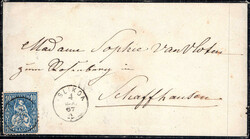 Madame Sophie Van Vloten
zum Rosenberg in
Schaffhausen
67